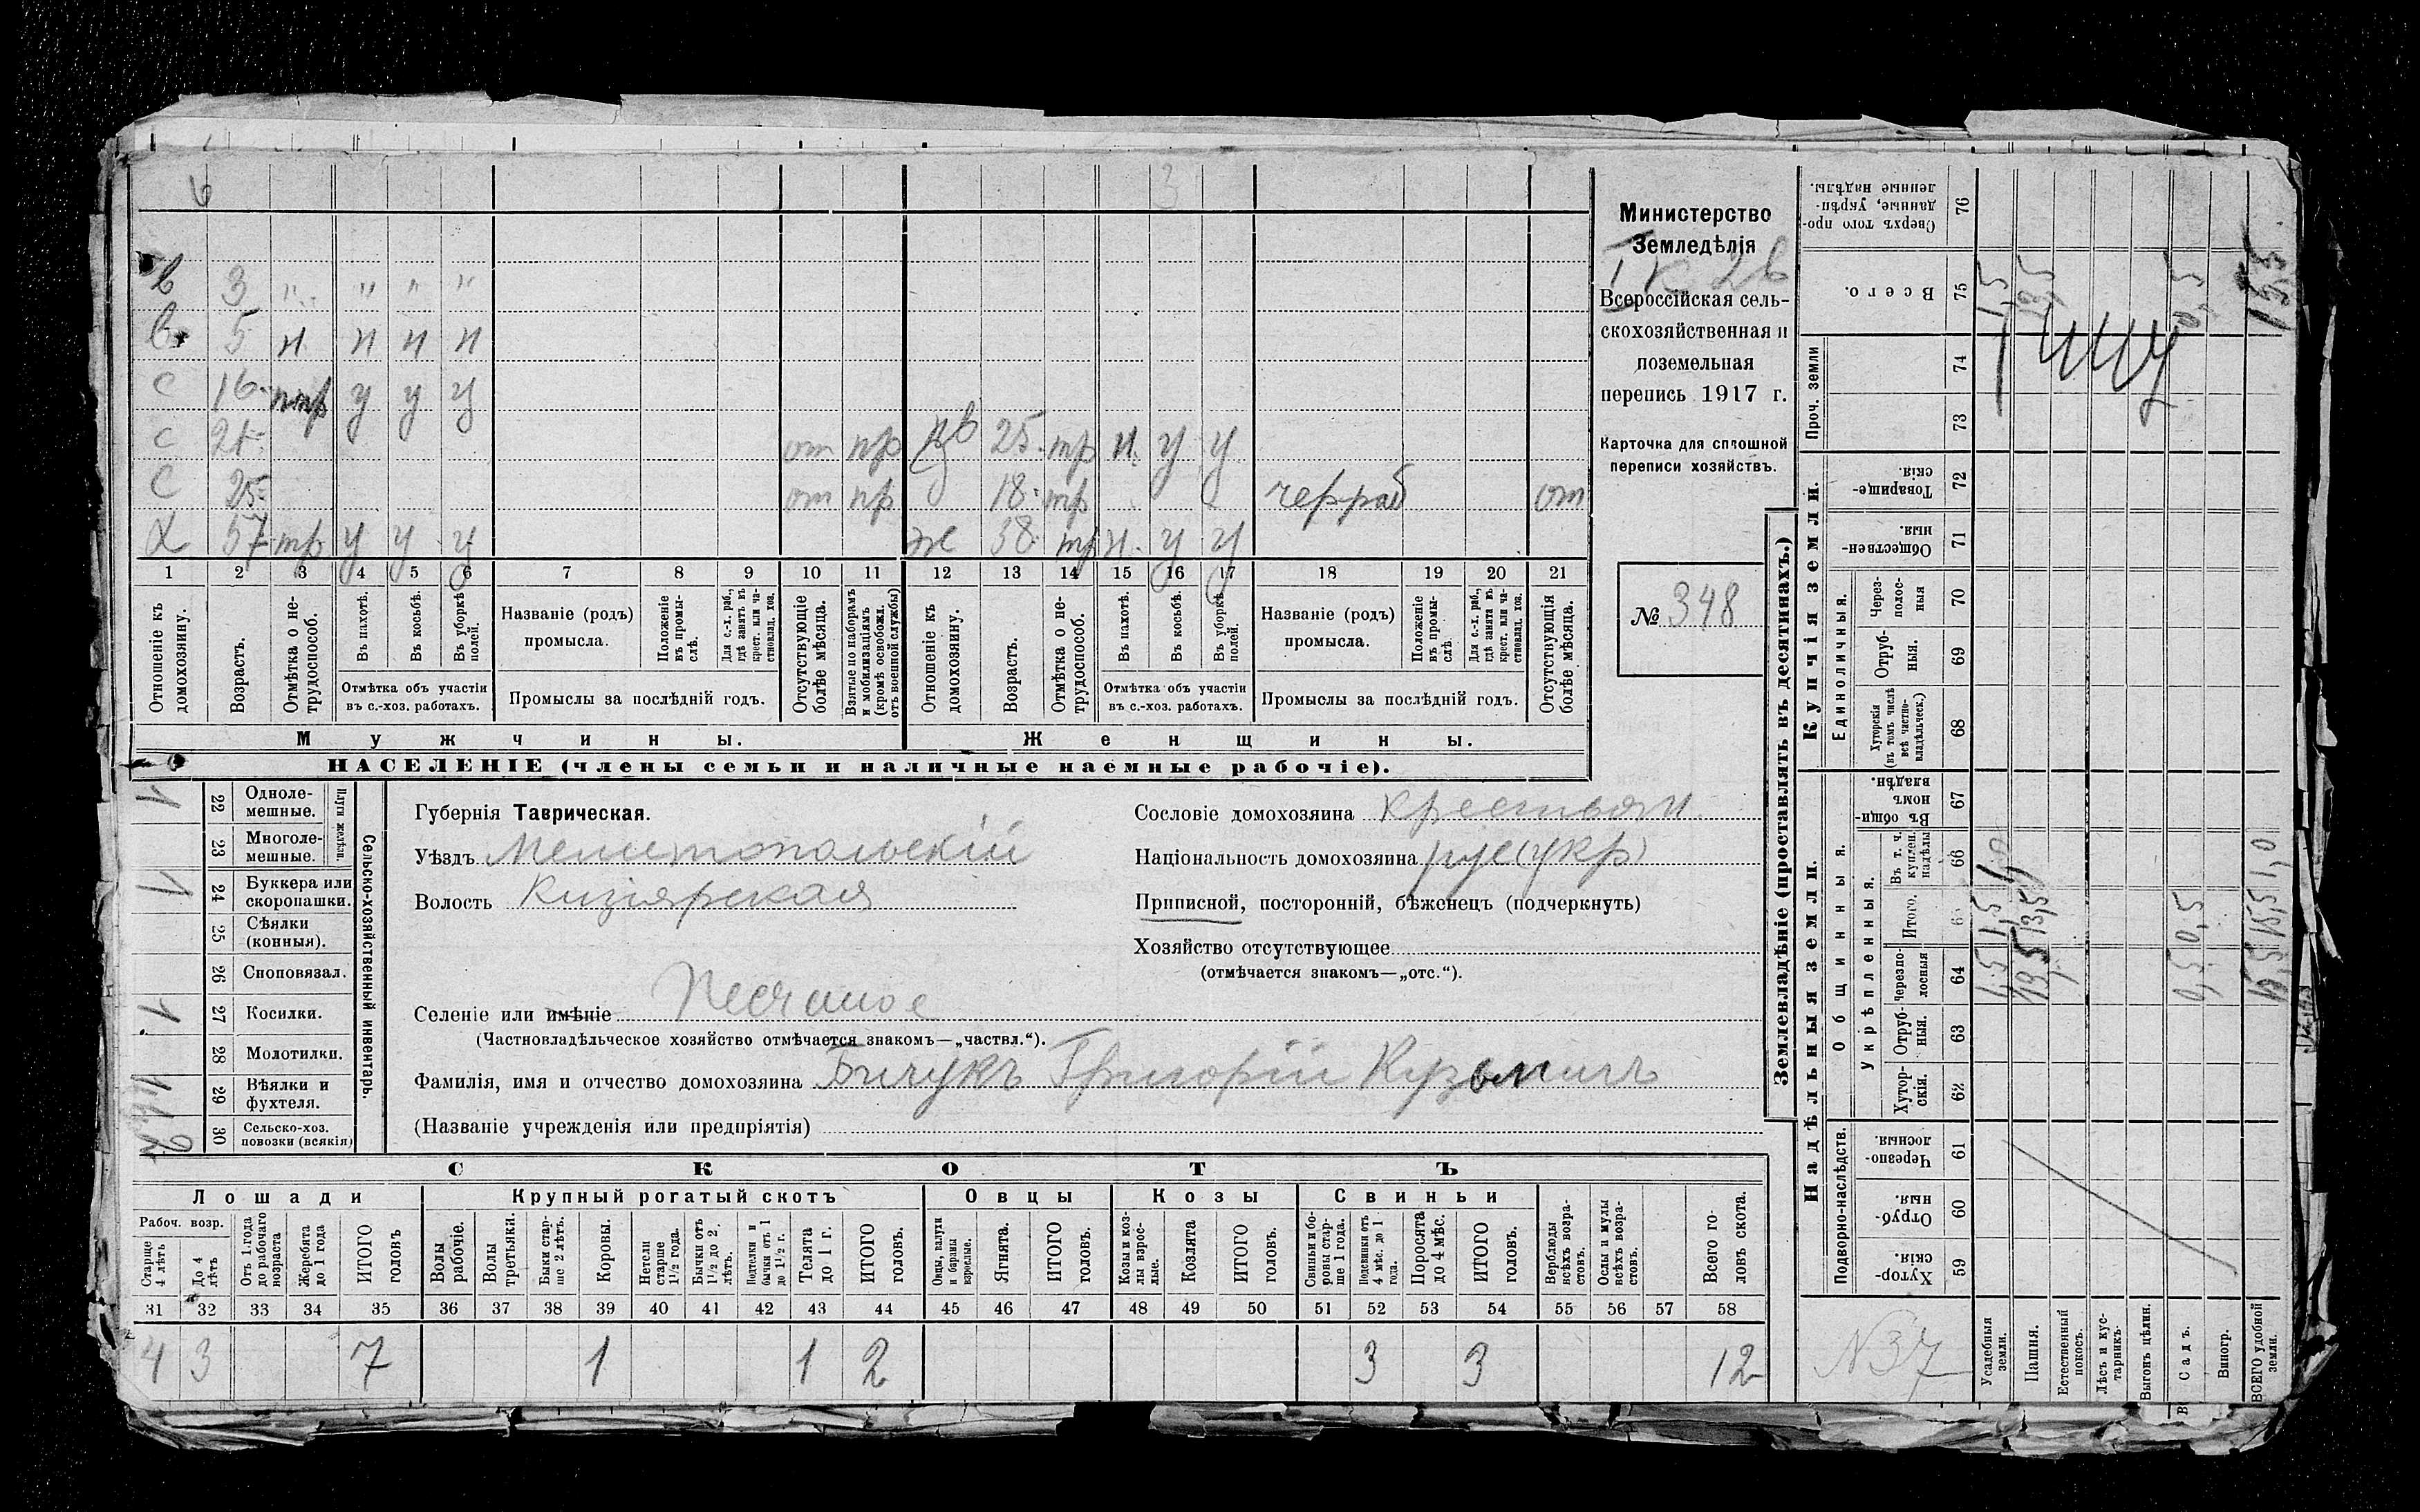 6 3
в 3 " " " "
в 5 н н н н
с 16 ппр у у у
с 21 от пр дв 25 тр н у у
с 25 от пр д 18 тр чер раб от
х 57 тр у у у же 38 тр н у у
1 2 3 4 5 6 7 8 9 10 11 12 13 14 15 16 17 18 19 20 21
Отношеніе къ домохозяину.
Возрастъ.
Отмѣтка о нетрудоспособ.
Въ пахотѣ.
Въ косьбѣ.
Въ уборкѣ полей.
Отмѣтка объ участіи
въ с.-хоз. работахъ.
Названіе (родъ)
промысла.
Положеніе въ промыслѣ.
Для с.-х. раб., гдѣ занятъ въ крест. или частновлад. хоз.
Промыслы за послѣдній годъ.
Отсутствующіе болѣе мѣсяца.
Взятые по наборамъ и мобилизаціямъ (кромѣ освобожд. отъ военной службы)
Отношеніе къ домохозяину.
Возрастъ.
Отмѣтка о нетрудоспособ.
Въ пахотѣ.
Въ косьбѣ.
Въ уборкѣ полей.
Отмѣтка объ участіи
въ с.-хоз. работахъ.
Названіе (родъ)
промысла.
Положеніе въ промыслѣ
Для с.-х. раб., гдѣ занята въ крест. или частновлад. хоз.
Промыслы за послѣдній годъ.
Отсутствующія болѣе мѣсяца.
Мужчины. Женщины.
НАСЕЛЕНІЕ (члены семьи и наличные наемные рабочіе).
Министерство
Земледѣлія
Всероссійская сель-
скохозяйственная и
поземельная
перепись 1917 г.
Карточка для сплошной
переписи хозяйствъ.
№ 348
Сельско-хозяйственный инвентарь.
Плуги желѣзн.
22 Однолемешные. 1
23 Многолемешные.
24 Буккера или скоропашки. 1
25 Сѣялки (конныя).
26 Сноповязал.
27 Косилки. 1
28 Молотилки.
29 Вѣялки и фухтеля.
30 Сельско-хоз. повозки (всякія) 2
Губернія Таврическая.
Уѣздъ Мелитопольскій
Волость Кизіярская
Селеніе или имѣніе Песчаное
(Частновладѣльческое хозяйство отмѣчается знакомъ—„частвл.“).
Фамилія, имя и отчество домохозяина Бичукъ Григорій Кузьмичъ
(Названіе учрежденія или предпріятія)
Сословіе домохозяина крестьян
Національность домохозяина рус(укр)
Приписной, посторонній, бѣженецъ (подчеркнуть)
Хозяйство отсутствующее
(отмѣчается знакомъ—„отс.“).
СКОТЪ
Лошади Крупный рогатый скотъ Овцы Козы Свиньи
Рабоч. возр.
Старше 4 лѣтъ
До 4 лѣтъ
Отъ 1 года до рабочаго возраста
Жеребята до 1 года
ИТОГО головъ
Волы рабочіе.
Волы третьяки.
Быки старше 2 лѣтъ.
Коровы.
Нетели старше 1½ года.
Бычки отъ 1½ до 2 лѣтъ.
Подтелки и бычки отъ 1 до 1½ г.
Телята до 1 г.
ИТОГО головъ.
Овцы, валухи и бараны взрослые.
Ягнята.
ИТОГО головъ.
Козы и козлы взрослые.
Козлята
ИТОГО головъ.
Свиньи и боровы старше 1 года.
Подсвинки отъ 4 мѣс. до 1 года.
Поросята до 4 мѣс.
ИТОГО головъ.
Верблюды всѣхъ возрастовъ.
Ослы и мулы всѣхъ возрастовъ.
Всего головъ скота.
31 32 33 34 35 36 37 38 39 40 41 42 43 44 45 46 47 48 49 50 51 52 53 54 55 56 57 58
4 3 7 1 1 2 3 3 12
Землевладѣніе (проставлять въ десятинахъ.)
Надѣльныя земли. Купчія земли. Проч. земли
Подворно-наслѣдств.
Общинныя.
Укрѣпленныя.
Единоличныя.
59 Хуторскія.
60 Отрубныя.
61 Черезполосныя.
62 Хуторскія.
63 Отрубныя.
64 Черезполосныя
Итого.
66 Въ т. ч. куплен. надѣлы
67 Въ общиномъ владѣн.
68 Хуторскія (въ томъ числѣ всѣ частновладѣльческ.)
69 Отрубныя.
70 Черезполосныя
71 Общественныя.
72 Товарищескія.
73
74
75 Всего.
76 Сверхъ того проданные, укрѣпленные надѣлы.
N 37
Усадебныя земли. 1,5 1,5 1,0 1,5
Пашня. 13,5 13,5 13,5
Естественный покосъ.
Лѣсъ и кустарникъ.
Выгонъ цѣлин.
Садъ. 0,5 0,5 0,5
Виногр.
ВСЕГО удобной земли. 15,5 15,5 1,0 15,5